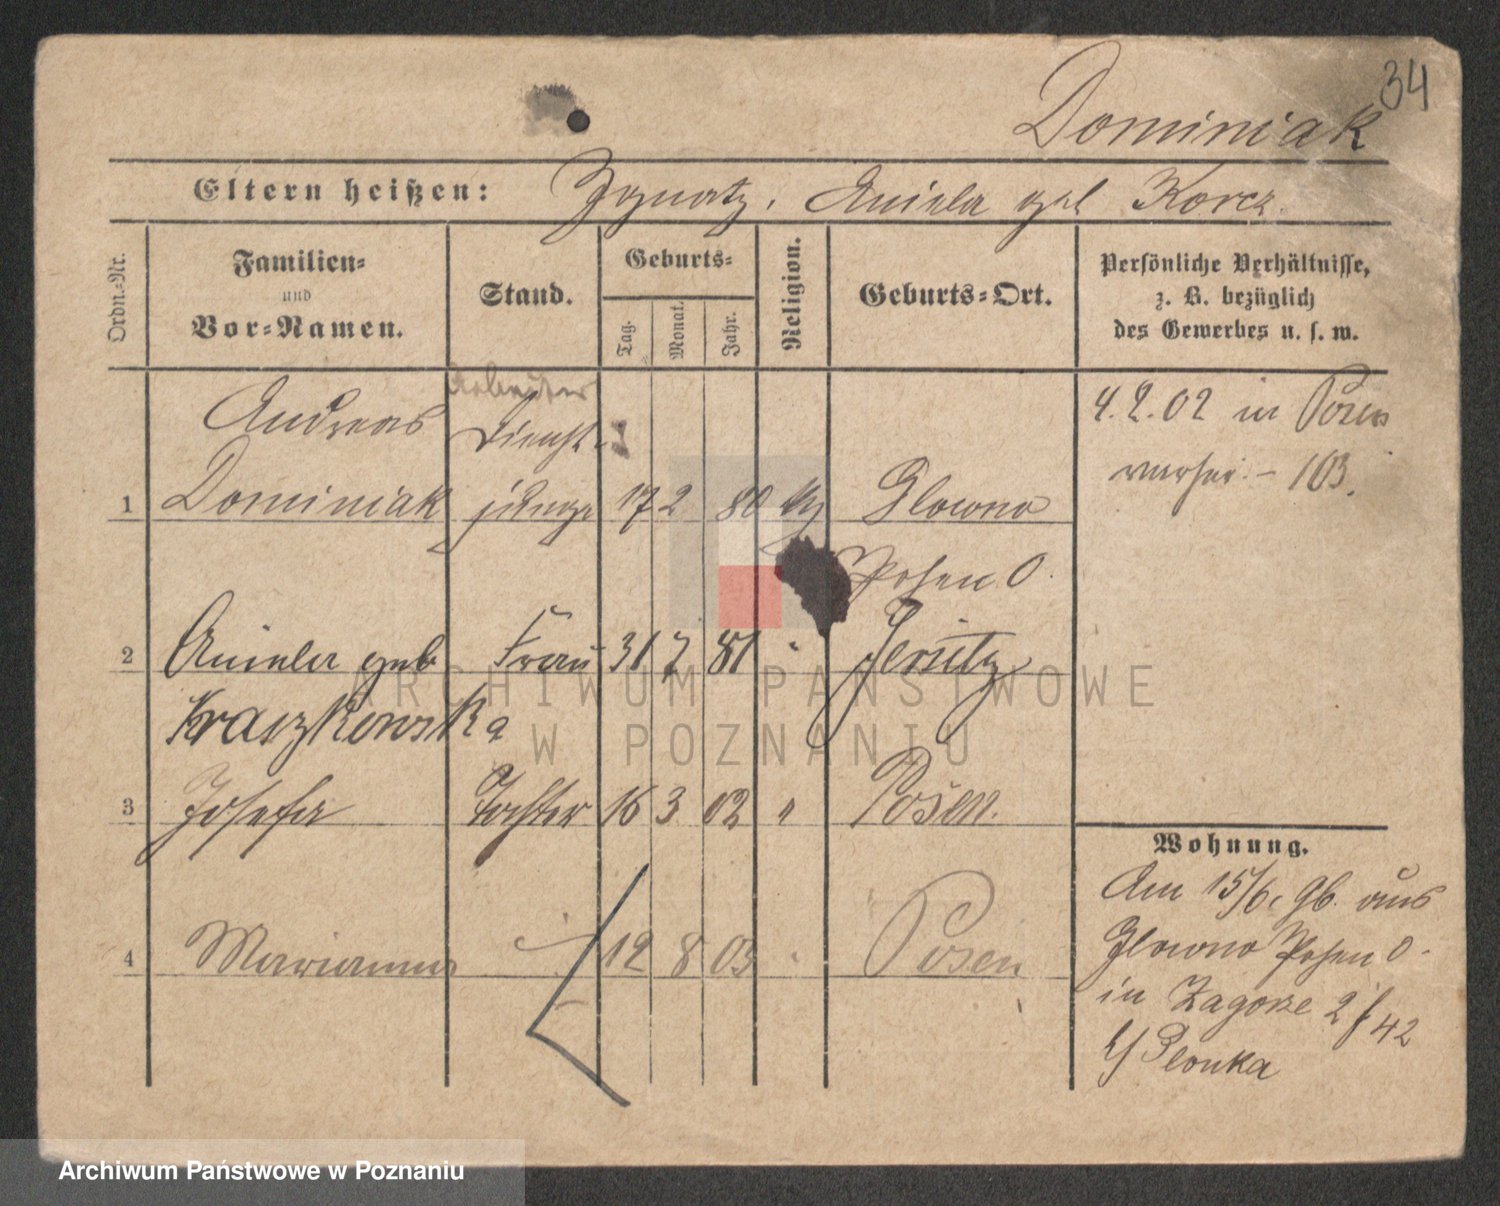 34
Dominiak
Eltern heißen: Ignatz, Aniela geb Korcz.
Ordn.-Nr.
Familien- und Vor-Namen.
Stand.
Geburts-
Tag. Monat. Jahr.
Religion.
Geburts-Ort.
Persönliche Verhältnisse,
z. B. bezüglich
des Gewerbes u. s. w.
Arbeiter
Andreas Dienst-
1 Dominiak junge 17 2 80 Glowno
Posen O.
4.2.02 in Posen
103.
2 Aniela geb Frau 31 7 81 " Jersitz
Kraszkowska
3 Josefa Tochter 16 3 02 " Posen.
4 Marianna 12 8 03 " Posen
Wohnung.
Am 15/6. 96. aus
Glowno Posen O.
in Zagorze 2 f 42
b/ Plonka
ARCHIWUM PAŃSTWOWE
W POZNANIU
Archiwum Państwowe w Poznaniu